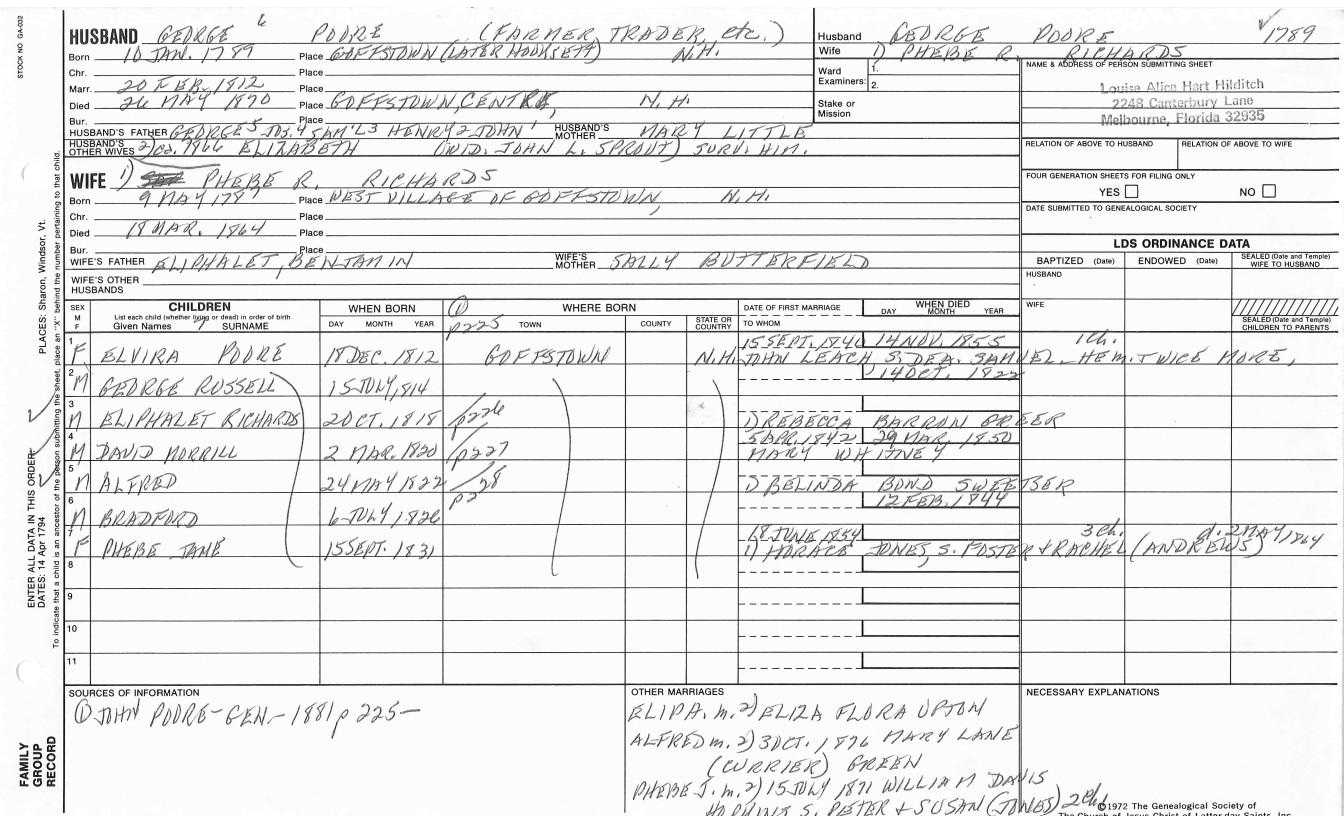 STOCK NO GA-032
HUSBAND GEORGE 6 POORE (FARMER, TRADER, etc.)
Born 10 JAN. 1789 Place GOFFSTOWN (LATER HOOKSETT) N.H.
Chr. Place
Marr. 20 FEB. 1812 Place
Died 26 MAY 1870 Place GOFFSTOWN, CENTRE, N.H.
Bur. Place
HUSBAND'S FATHER GEORGE 5 JOS. 4 SAM'L 3 HENRY 2 JOHN 1 HUSBAND'S MOTHER MARY LITTLE
HUSBAND'S OTHER WIVES 2) ELIZABETH (WID. JOHN L. SPROUT) SURV. HIM.
WIFE 1) PHEBE R. RICHARDS
Born 9 MAY Place WEST VILLAGE OF GOFFSTOWN, N.H.
Chr. Place
Died 18 MAR. 1864 Place
Bur. Place
WIFE'S FATHER ELIPHALET, BENJAMIN WIFE'S MOTHER SALLY BUTTERFIELD
WIFE'S OTHER HUSBANDS
Husband GEORGE POORE 1789
Wife 1) PHEBE R. RICHARDS
Ward Examiners: 1.
2.
Stake or Mission
NAME & ADDRESS OF PERSON SUBMITTING SHEET
Louise Alice Hart Hilditch
2248 Canterbury Lane
Melbourne, Florida 32935
RELATION OF ABOVE TO HUSBAND RELATION OF ABOVE TO WIFE
FOUR GENERATION SHEETS FOR FILING ONLY
YES NO
DATE SUBMITTED TO GENEALOGICAL SOCIETY
LDS ORDINANCE DATA
BAPTIZED (Date) ENDOWED (Date) SEALED (Date and Temple) WIFE TO HUSBAND
HUSBAND
WIFE
SEALED (Date and Temple) CHILDREN TO PARENTS
SEX M F
CHILDREN
List each child (whether living or dead) in order of birth
Given Names 7 SURNAME
WHEN BORN
DAY MONTH YEAR
① p225
WHERE BORN
TOWN COUNTY STATE OR COUNTRY
DATE OF FIRST MARRIAGE
TO WHOM
WHEN DIED
DAY MONTH YEAR
1 F ELVIRA POORE 18 DEC. 1812 GOFFSTOWN N.H. 15 SEPT. 1840 14 NOV. 1855 1 Ch.
JOHN LEACH S. DEA. SAMUEL. HE M. TWICE MORE,
2 M GEORGE RUSSELL 15 JULY, 1814 14 OCT. 1822
3 M ELIPHALET RICHARDS 2 OCT. 1818 p226 1) REBECCA BARRON GREER
4 M DAVID MORRILL 2 MAR. 1820 p227 5 APR. 1842 29 MAR. 1850
MARY WHITNEY
5 M ALFRED 24 MAY 1822 p228 1) BELINDA BOND SWEETSER
6 M BRADFORD 6 JULY 1826 12 FEB. 1844
7 F PHEBE JANE 15 SEPT. 1831 18 JUNE 1854 3 Ch. d. 2 MAY 1864
1) HORACE JONES, S. FOSTER & RACHEL (ANDREWS)
8
9
10
11
SOURCES OF INFORMATION
① JOHN POORE-GEN.-1881 p 225-
OTHER MARRIAGES
ELIPA. m. 2) ELIZA FLORA UPTON
ALFRED m. 2) 3 OCT. 1876 MARY LANE
(CURRIER) GREEN
PHEBE J. m. 2) 15 JULY 1871 WILLIAM DAVIS
HOPKINS S. PETER & SUSAN (JONES) 2 Ch.
NECESSARY EXPLANATIONS
©1972 The Genealogical Society of
The Church of Jesus Christ of Latter-day Saints, Inc.
FAMILY GROUP RECORD
ENTER ALL DATA IN THIS ORDER:
DATES: 14 Apr 1794 PLACES: Sharon, Windsor, Vt.
To indicate that a child is an ancestor of the person submitting the sheet, place an "X" behind the number pertaining to that child.